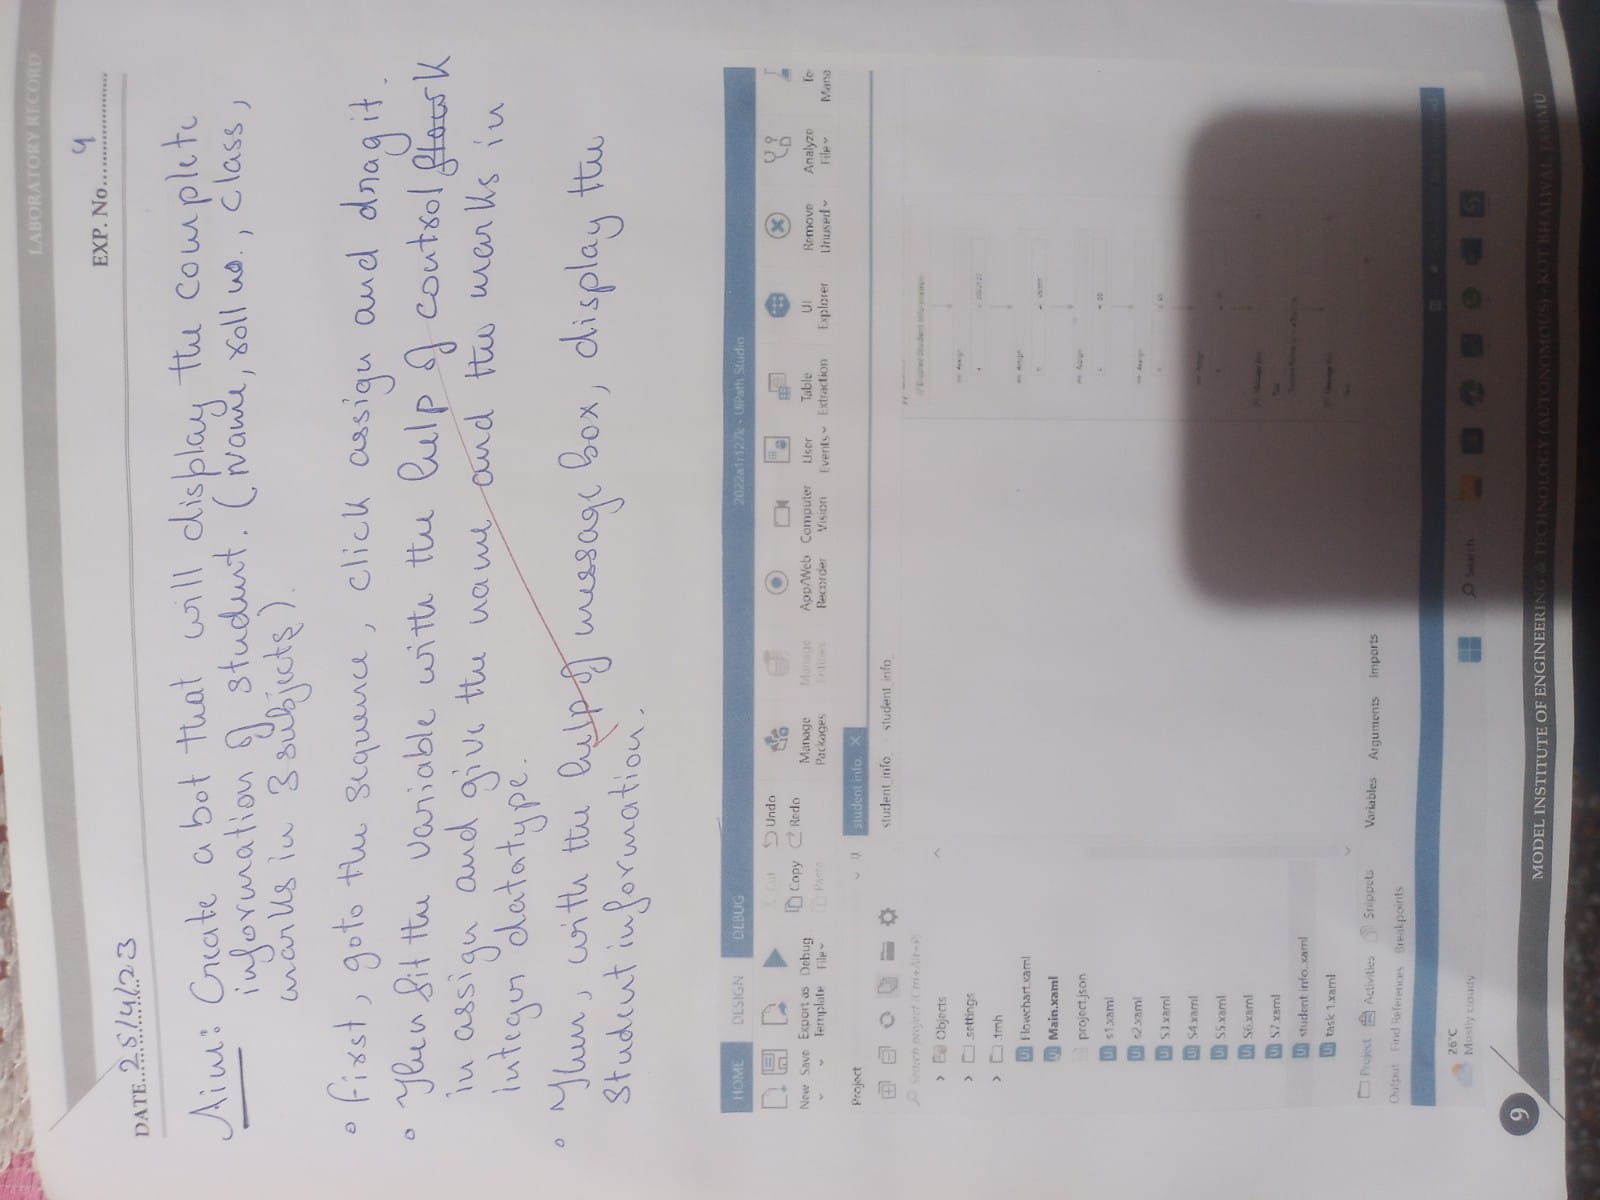 LABORATORY RECORD
DATE 25/4/23
EXP. No. 9
Aim: Create a bot that will display the complete
information of student. (Name, roll no., class,
marks in 3 subjects).
• First, goto the sequence, click assign and drag it.
• Then fit the variable with the help of control + K
in assign and give the name and the marks in
integer datatype.
• Then, with the help of message box, display the
Student information.
2022a1r127k - UiPath Studio
HOME DESIGN DEBUG
New Save Export as Template Debug File
Cut Copy Paste
Undo Redo
Manage Packages
Manage Entities
App/Web Recorder
Computer Vision
User Events
Table Extraction
UI Explorer
Remove Unused
Analyze File
Project
student info.
student_info_ student_info_
Search project (Ctrl+Alt+P)
Objects
.settings
.tmh
Flowchart.xaml
Main.xaml
project.json
s1.xaml
s2.xaml
S3.xaml
S4.xaml
S5.xaml
S6.xaml
S7.xaml
student info..xaml
task 1.xaml
Project Activities Snippets
Variables Arguments Imports
Output Find References Breakpoints
26°C
Mostly cloudy
Search
9
MODEL INSTITUTE OF ENGINEERING & TECHNOLOGY (AUTONOMOUS) - KOT BHALWAL JAMMU